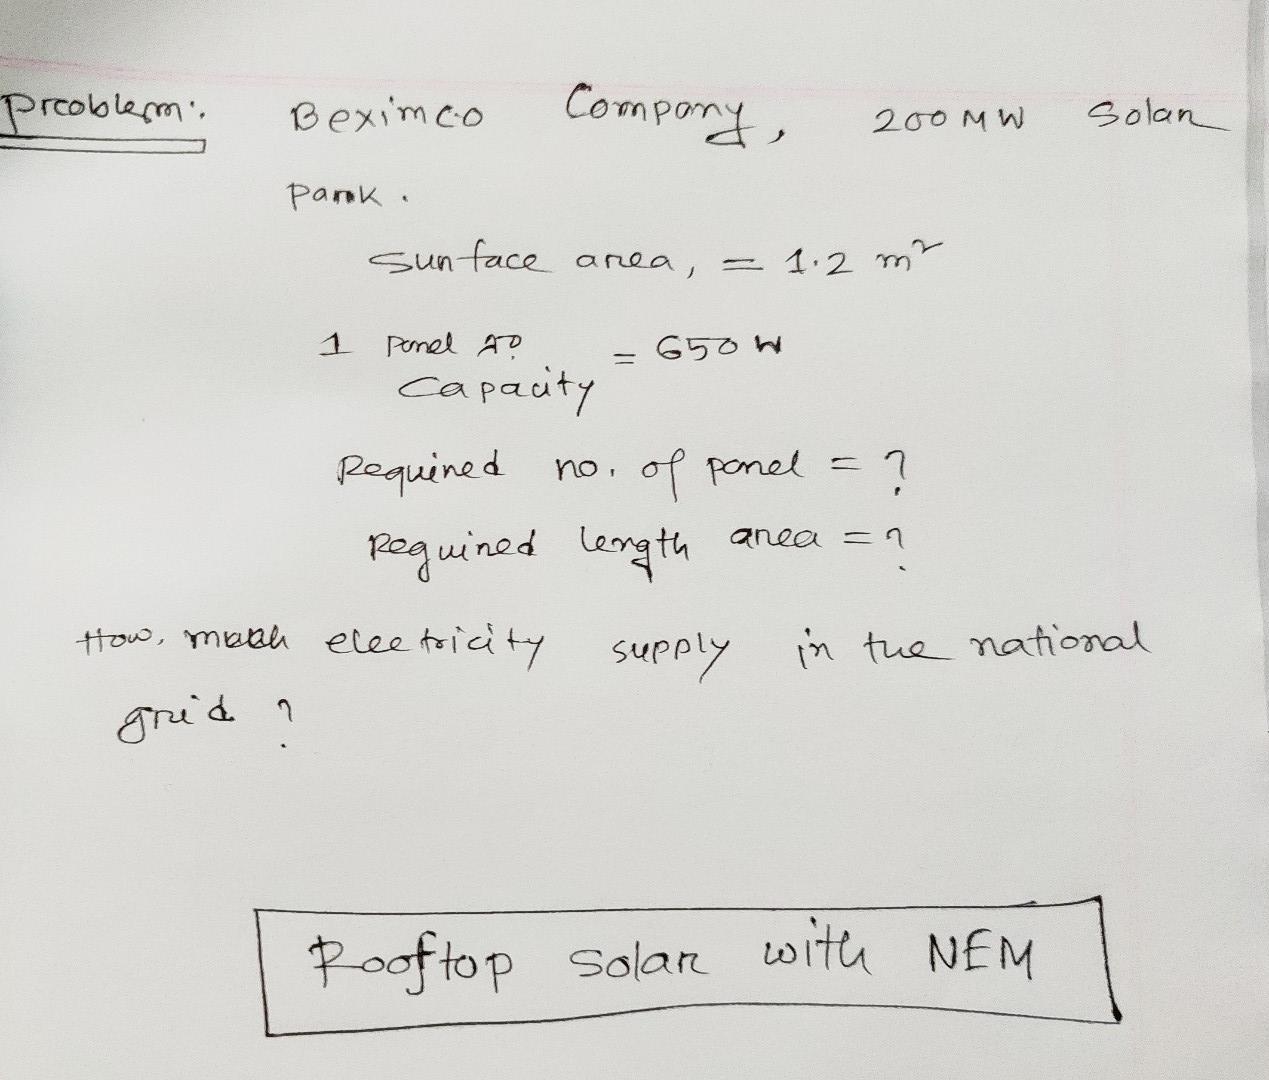 Problem: Beximco Company, 200 MW Solar
Park.
Surface area, = 1.2 m²
1 Panel
Capacity = 650 W
Required no. of panel = ?
Required length area = ?
How, much electricity supply in the national
grid ?
Rooftop Solar with NEM